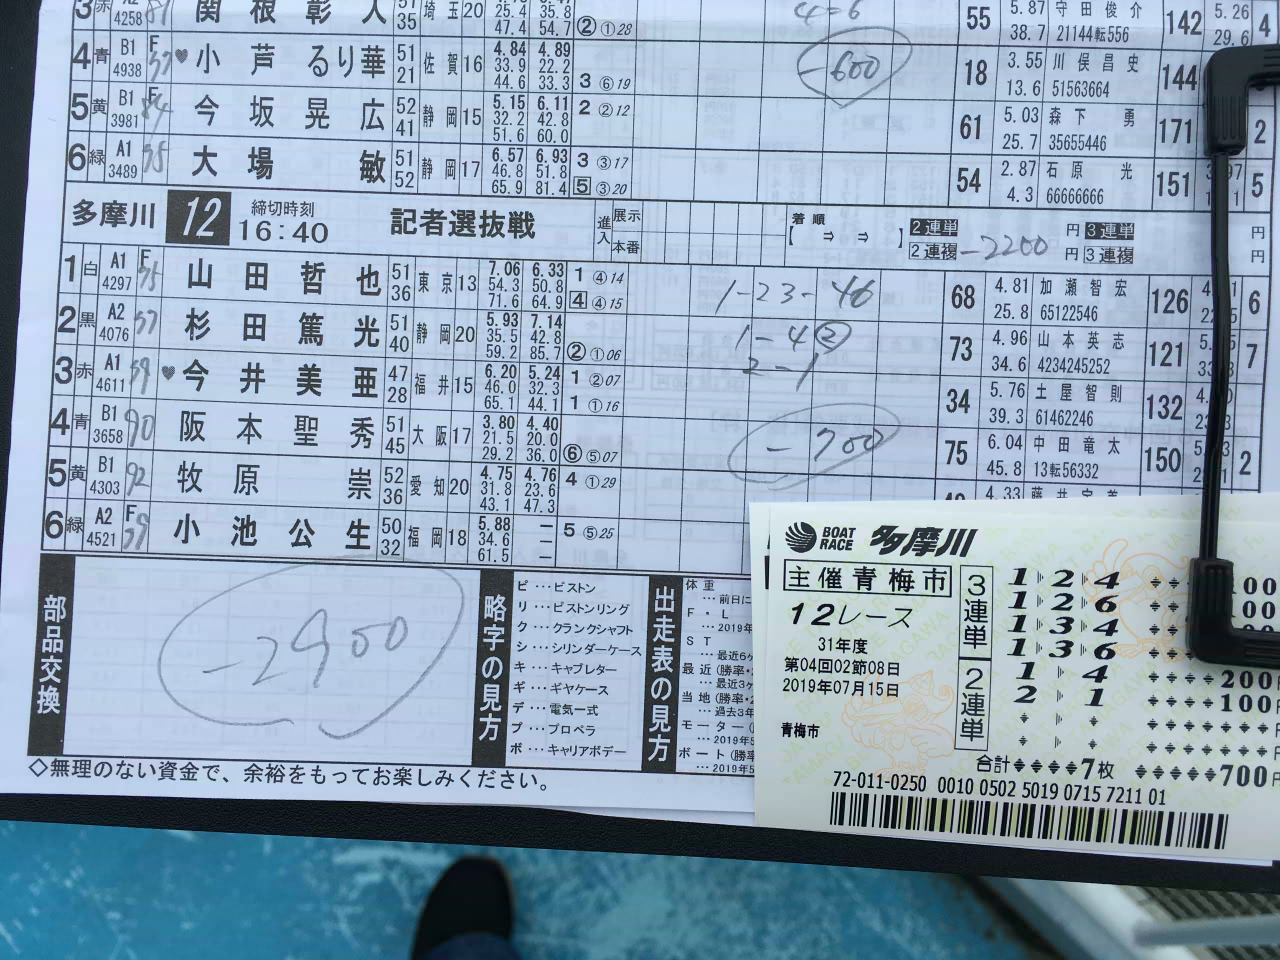 3 赤 A2 4258 関根彰人 51 35 埼玉 20 25.4 47.4 35.8 54.7 ②①28 4=6 55 5.87 38.7 守田俊介 21144転556 142 5.26 29.6 4
4 青 B1 4938 F 37 ♥ 小芦るり華 51 21 佐賀 16 4.84 33.9 44.6 4.89 22.2 33.3 3 ⑥19 -600 18 3.55 13.6 川俣昌史 51563664 144
5 黄 B1 3981 F 今坂晃広 52 41 静岡 15 5.15 32.2 51.6 6.11 42.8 60.0 2 ②12 61 5.03 25.7 森下勇 35655446 171 2
6 緑 A1 3489 35 大場敏 51 52 静岡 17 6.57 46.8 65.9 6.93 51.8 81.4 3 ③17 5 ③20 54 2.87 4.3 石原光 66666666 151 5
多摩川 12 締切時刻 16:40 記者選抜戦 進入 展示 本番 着順 【 ⇒ ⇒ 】 2連単 円 3連単 円
2連複 -2200 円 3連複 円
1 白 A1 4297 F 35 山田哲也 51 36 東京 13 7.06 54.3 71.6 6.33 50.8 64.9 1 ④14 4 ④15 1-23-46 68 4.81 25.8 加瀬智宏 65122546 126 6
2 黒 A2 4076 37 杉田篤光 51 40 静岡 20 5.93 35.5 59.2 7.14 42.8 85.7 ②①06 1-4② 73 4.96 34.6 山本英志 4234245252 121 7
2-1
3 赤 A1 4611 39 ♥ 今井美亜 47 28 福井 15 6.20 46.0 65.1 5.24 32.3 44.1 1 ②07 1 ①16 34 5.76 39.3 土屋智則 61462246 132
4 青 B1 3658 90 阪本聖秀 51 45 大阪 17 3.80 21.5 29.2 4.40 20.0 36.0 ⑥⑤07 -700 75 6.04 45.8 中田竜太 13転56332 150 2
5 黄 B1 4303 92 牧原崇 52 36 愛知 20 4.75 31.8 43.1 4.76 23.6 47.3 4 ①29 4.33
6 緑 A2 4521 F 39 小池公生 50 32 福岡 18 5.88 34.6 61.5 — — — 5 ⑤25
部品交換
-2900
略字の見方
ピ…ピストン
リ…ピストンリング
ク…クランクシャフト
シ…シリンダーケース
キ…キャブレター
ギ…ギヤケース
デ…電気一式
プ…プロペラ
ボ…キャリアボデー
出走表の見方
体重
…前日に
F・L
…2019年
ST
…最近6ヶ
最近(勝率・
…最近3ヶ
当地(勝率・2
…過去3年
モーター(
…2019年5
ボート(勝率
…2019年5
◇無理のない資金で、余裕をもってお楽しみください。
BOAT RACE 多摩川
主催青梅市
12レース
31年度
第04回02節08日
2019年07月15日
青梅市
3連単
1 2 4 100
1 2 6 00
1 3 4
1 3 6
2連単
1 4 200円
2 1 100円
合計 7枚 700円
72-011-0250 0010 0502 5019 0715 7211 01